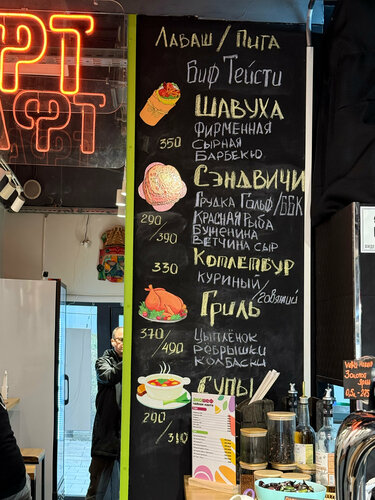 Лаваш / Пита
Биф Тейсти
ШАВУХА
ФИРМЕННАЯ
350
СЫРНАЯ
БАРБЕКЮ
СЭНДВИЧИ
ГРУДКА ГОЛЬФ/ББК
290/390
КРАСНАЯ РЫБА
БУЖЕНИНА
ВЕТЧИНА СЫР
КОТЛЕТБУР
330
КУРИНЫЙ/ГОВЯЖИЙ
ГРИЛЬ
370/490
ЦЫПЛЁНОК
РЁБРЫШКИ
КОЛБАСКИ
СУПЫ
290/310